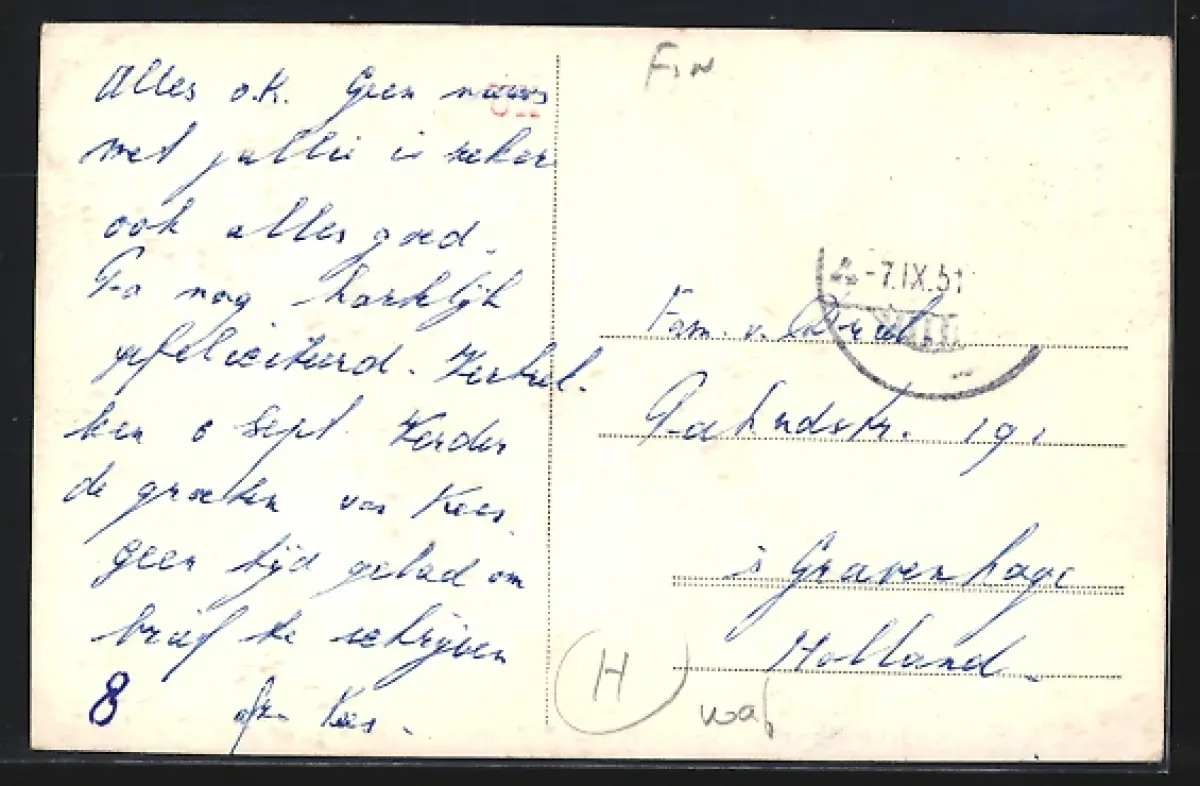 Alles o.k. Geen nieuws
met jullie is zeker
ook alles goed.
Pa nog hartelijk
gefeliciteerd. Vertrek-
ken 6 sept. Verder
de groeten van Kees.
geen tijd gehad om
brief te schrijven
Kees.
8
FIN
-7.IX.51
Fam. v.
191
's Gravenhage
Holland
H